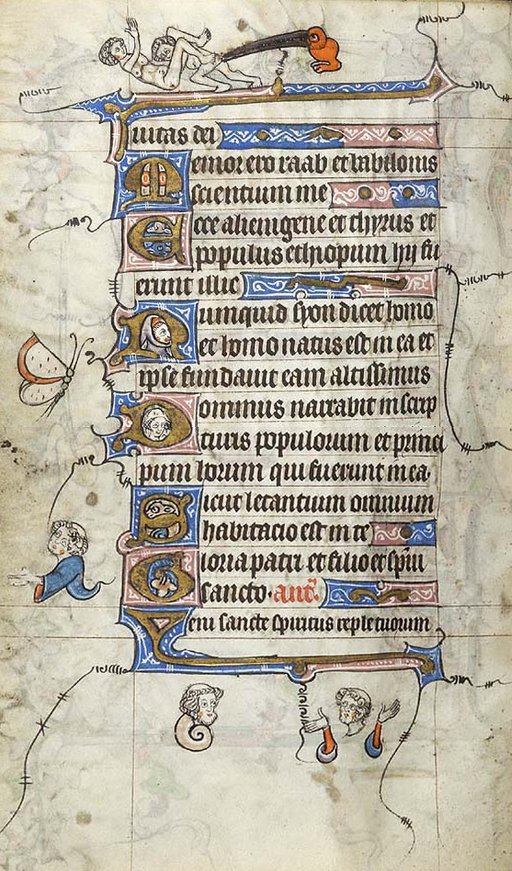 iuitas dei
Memor ero raab et babilonis
scientium me
Ecce alienigene et thyrus et
populus ethiopum hii fu
erunt illic
Numquid syon dicet homo
et homo natus est in ea et
ipse fundauit eam altissimus
Dominus narrabit in scrip
turis populorum et princi
pum horum qui fuerunt in ea.
Sicut letantium omnium
habitacio est in te
Gloria patri et filio et spiritui
sancto. ant.
Veni sancte spiritus reple tuorum